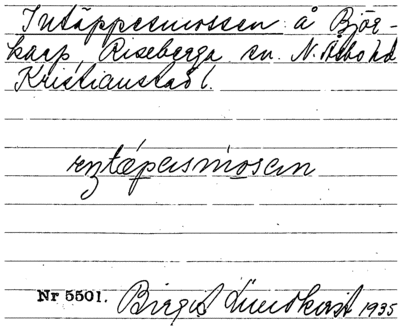 Intäppesmossen å Björ-
karp, Riseberga sn. N. Åsbo hd
Kristianstad l.
yntäpesmosen
Nr 5501. Birgit Lundkvist 1935